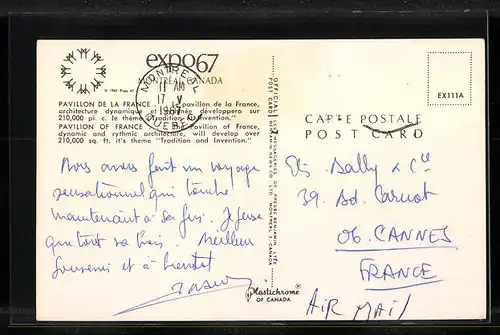 expo67
MONTRÉAL, CANADA
© 1963 Expo 67
MONTREAL
11 AM
17 V
1967
QUEBEC
PAVILLON DE LA FRANCE — Le pavillon de la France,
architecture dynamique et rythmée développera sur
210,000 pi. c. le thème "Tradition et Invention."
PAVILION OF FRANCE — The Pavilion of France,
dynamic and rythmic architecture, will develop over
210,000 sq. ft. it's theme "Tradition and Invention."
Nous avons fait un voyage
sensationnel qui touche
maintenant à sa fin. Je pense
que tout va bien. Meilleurs
Souvenirs et à bientôt
OFFICIAL
POST CARD
LES MESSAGERIES DE PRESSE BENJAMIN LTÉE
BENJAMIN NEWS CO. LTD. MONTREAL, CANADA
Plastichrome
OF CANADA
EX111A
CARTE POSTALE
POST CARD
Ets. Bally & Cie
39. Bd. Carnot
06. CANNES
FRANCE
AIR MAIL